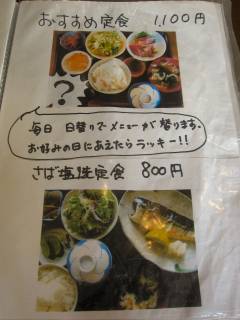 おすすめ定食 1,100円
?
毎日 日替りでメニューが替ります。
お好みの日にあえたらラッキー!!
さば塩焼定食 800円